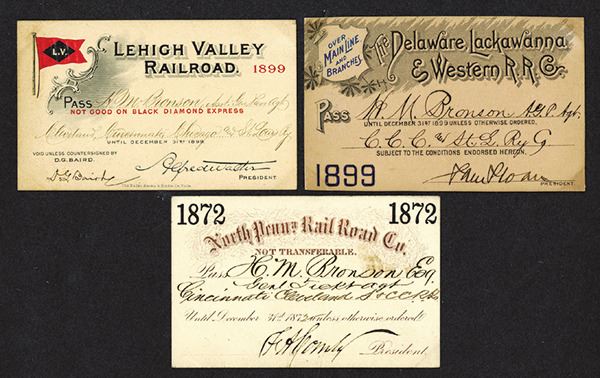 L.V.
LEHIGH VALLEY
RAILROAD.
1899
PASS H. M. Bronson
NOT GOOD ON BLACK DIAMOND EXPRESS
Cleveland, Cincinnati, Chicago & St. Louis Ry
UNTIL DECEMBER 31ST 1899.
VOID UNLESS COUNTERSIGNED BY
D.G. BAIRD.
D. G. Baird
Alfred Walter
PRESIDENT.
OVER
MAIN LINE
AND
BRANCHES.
The Delaware, Lackawanna
& Western R. R. Co.
PASS H. M. Bronson A.G.P. Agt.
UNTIL DECEMBER 31ST 1899 UNLESS OTHERWISE ORDERED.
C. C. C. & St. L. Ry
SUBJECT TO THE CONDITIONS ENDORSED HEREON.
1899
Sam Sloan
PRESIDENT.
1872 1872
North Penna Rail Road Co.
NOT TRANSFERABLE.
Pass H. M. Bronson Esq.
Genl Ticket Agt
Cincinnati Cleveland
Until December 31st 1872 unless otherwise ordered
President.